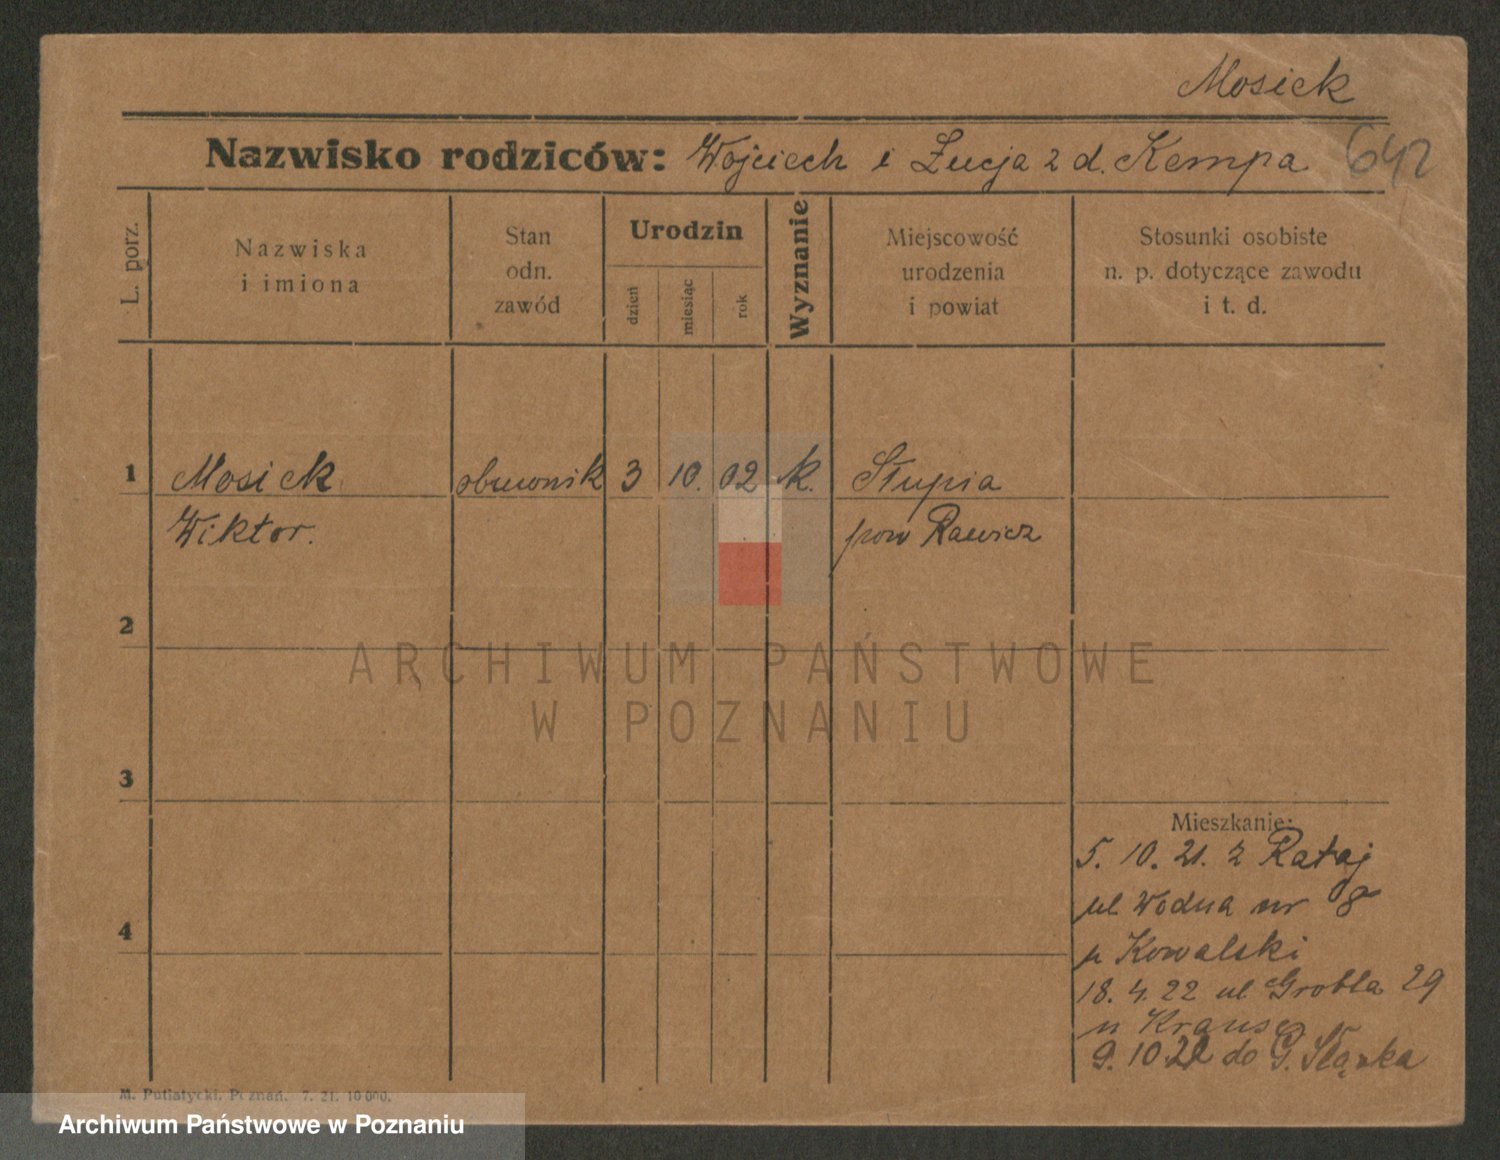 Mosiek
Nazwisko rodziców: Wojciech i Łucja z d. Kempa
642
L. porz.
Nazwiska
i imiona
Stan
odn.
zawód
Urodzin
dzień
miesiąc
rok
Wyznanie
Miejscowość
urodzenia
i powiat
Stosunki osobiste
n. p. dotyczące zawodu
i t. d.
1 Mosiek obuwnik 3 10. 02 k. Słupia
Wiktor. pow Rawicz
2
ARCHIWUM PAŃSTWOWE
W POZNANIU
3
Mieszkanie:
5. 10. 21. z Rataj
ul Wodna nr 8
u Kowalski
4
18. 4. 22 ul Grobla 29
u Krause
9. 10 22 do G. Śląska
M. Putiatycki, Poznań. 7. 21. 10 000.
Archiwum Państwowe w Poznaniu